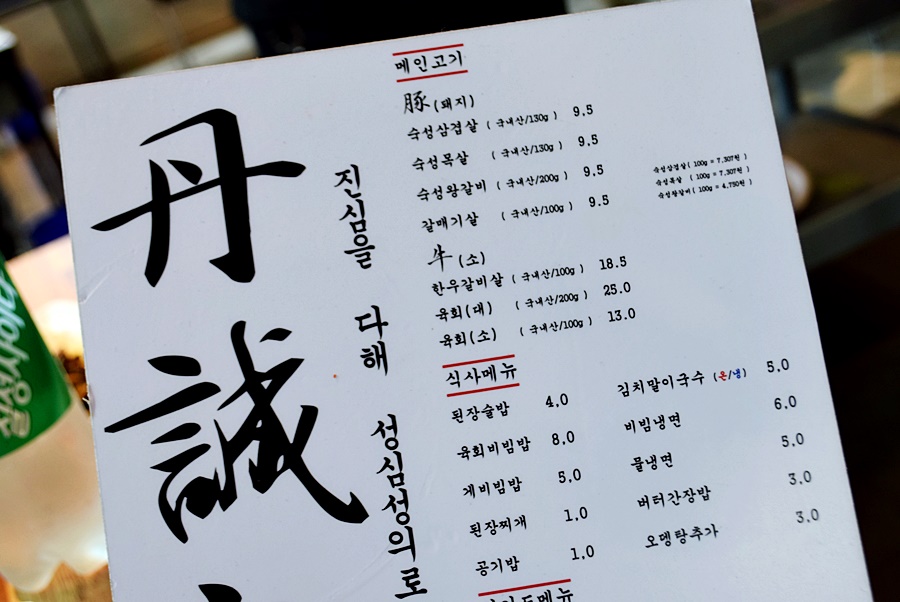 丹誠
진심을 다해 성심성의로
메인고기
豚(돼지)
숙성삼겹살 (국내산/130g) 9.5
숙성목살 (국내산/130g) 9.5
숙성왕갈비 (국내산/200g) 9.5
갈매기살 (국내산/100g) 9.5
숙성삼겹살(100g = 7,307원)
숙성목살 (100g = 7,307원)
숙성왕갈비(100g = 4,750원)
牛(소)
한우갈비살 (국내산/100g) 18.5
육회(대) (국내산/200g) 25.0
육회(소) (국내산/100g) 13.0
식사메뉴
된장술밥 4,0
육회비빔밥 8,0
게비빔밥 5,0
된장찌개 1,0
공기밥 1,0
김치말이국수 (온/냉) 5.0
비빔냉면 6.0
물냉면 5.0
버터간장밥 3.0
오뎅탕추가 3.0